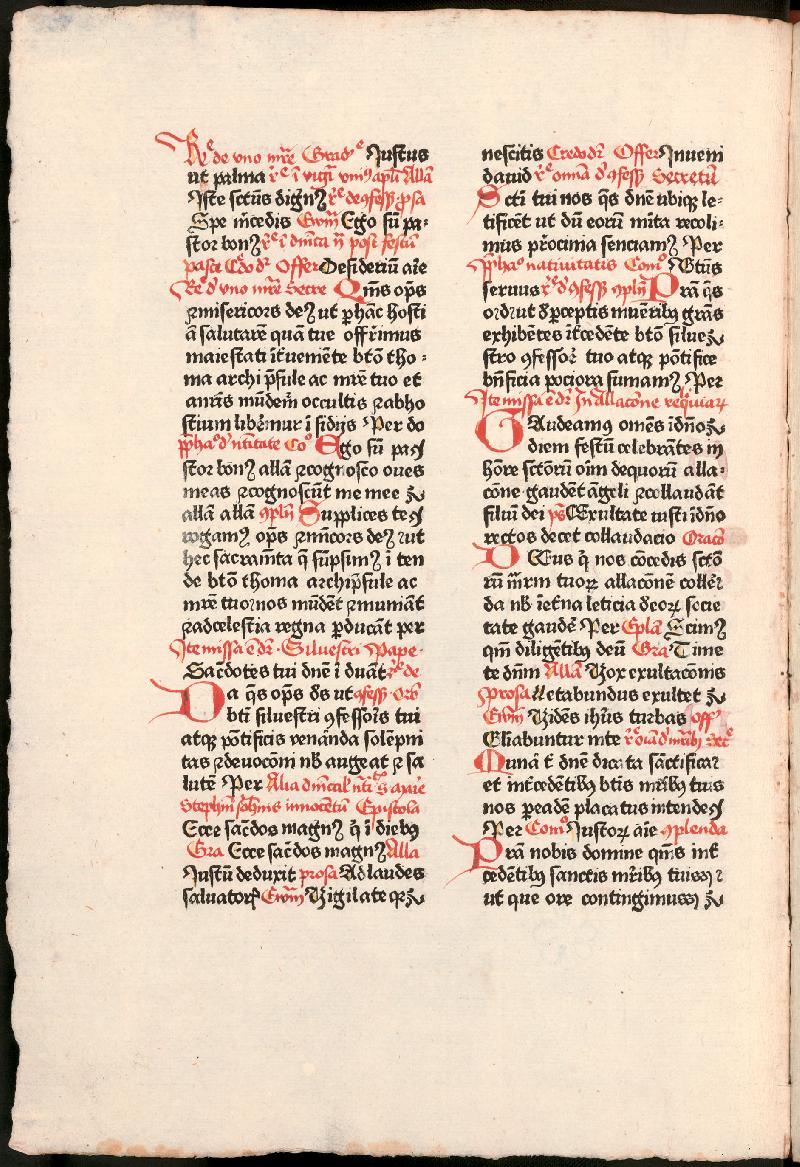 Rͤ de vno mr̄e Gradͤ Justus
ut palma rͤ ī vigīl vniꝰ apl̄i Allā
Iste sctūs dign̄ꝫ rͤ de ꝯfess̄ ꝓsa
Spe m̄cedis Ewm̄ Ego sū pa-
stor bonꝫ rͤ ī dm̄ca īī post festū
pasce Cͤdo dr̄ Offer Desideriū aīe
Rͤ d' vno mr̄e Secre Qm̄s op̄s
ꝛ misericors deꝫ ut ꝑ hāc hosti
ā salutarē quā tue offrīmus
maiestati īt̄ueniēte btō tho-
ma archi pſule ac mr̄e tuo et
an̄ris mūdem̄ occultis ꝛ ab ho
stium lib̄emur ī sidijs Per do
p̄phaº d' nt̄itate Coº Ego sū pa
stor bonꝫ allā ꝛ cognosco oues
meas ꝛ cognoscūt me mee ꝛc̄
allā allā ꝯpln̄ Supplices te
rogamꝰ op̄s ꝛ mīcors deꝫ ꝛ ut
hec sacram̄ta q̄ sūpsimꝰ ī ten
de btō thoma archipſule ac
mr̄e tuo nos mūdēt ꝛ muniāt
ꝛ ad celestia regna ꝑducāt per
Ite missa ē dr̄ Siluestri Pape
Sac̄dotes tui dn̄e ī duāt rͤ de
Da q̄s op̄s ds̄ ut ꝯfess̄ orō
btī siluestri ꝯfessor̄s tui
atqꝫ pōtificis venāda solēpni
tas ꝛ deuocōm nb̄ augeat ꝛ sa
lutē Per Alia dm̄cal' nt̄itͭs ꝫ apr̄e
Stephm̄ Iohīnis innocentū Epistola
Ecce sac̄dos magnꝫ q̄ ī diebꝰ
Gra Ecce sac̄dos magnꝫ Alla
Iustū deduxit prosa Ad laudes
saluatorꝭ Ewm̄ Vigilate qꝛ ꝛc̄
nescitis Credo dr̄ Offer Inueni
dauid rͤ omīa d' ꝯfess̄ Secretū
Sctī tui nos q̄s dn̄e ubiqꝫ le-
tificēt ut dū eorū mīta recoli-
mus pr̄ocinia senciamꝫ Per
p̄phaº natiuitatis Comº Btūs
seruus rͤ d' ꝯfess̄ ꝯpln̄ Prā q̄s
oꝛd' ut d' ꝑceptis muēribꝰ grās
exhibētes īt̄cedēte btō silueꝛ
stro ꝯfessor̄ tuo atqꝫ pōtifice
bn̄ficia pociora sumamꝫ Per
Ite missa ē dr̄ In Allacōne reliq̄uiaꝝ
Gaudeamꝰ omēs īdn̄o ꝛ
diem festū celebrātes in
hōre sctōrū oīm de quorū alla-
cōne gaudēt āgeli ꝛ collaudāt
filiū dei ps̄ Exultate iusti īdn̄o
rectos decet collaudacio Oracō
Deus q̄ nos cōcedis sctō
rū mr̄m tuoꝝ allacōnē coleꝛ
da nb̄ īet̄na leticia d' eoꝝ socie
tate gaudē Per Epl̄a Scimꝰ
qm̄ diligētibꝰ deū Gra Time
te dn̄m Allā Vox exultacōnis
Prosa Letabundus exultet ꝛc̄
Ewm̄ Vidēs ihūs turbas off'
Gliabuntur in te rͤ oīa d' mr̄ibꝰ Secͤ
Munā t̄ dn̄e dicata sāctificaꝛ
et int̄cedētibꝰ btīs mr̄ibꝰ tuis
nos ꝑ eadē placatus intende
Per Comº Justoꝝ aīe ꝯplenda
Prā nobis domine qm̄s int̄
cedētibꝰ sanctis mr̄ibꝰ tuis
ut que ore contingimus ꝛc̄